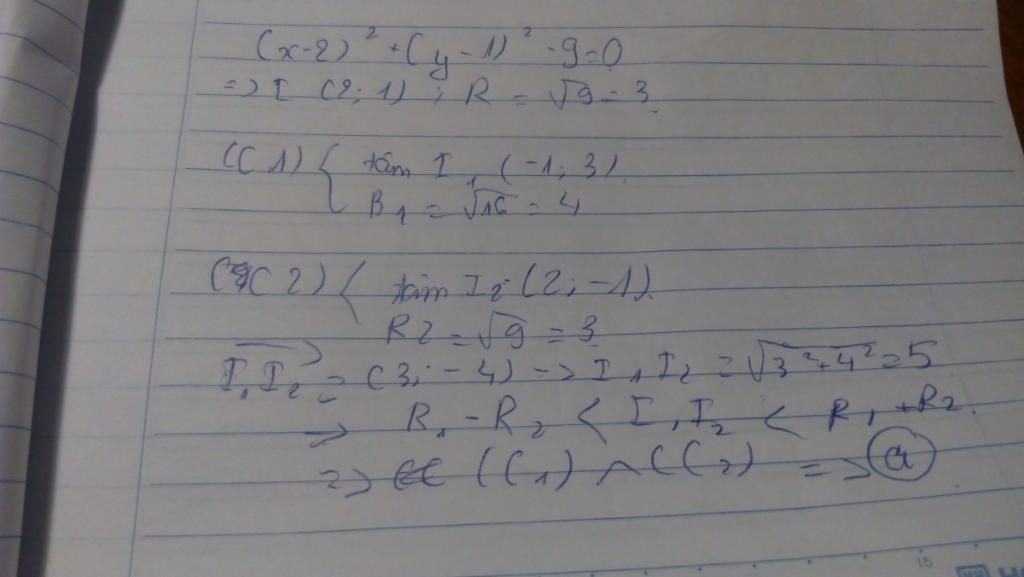 (x-2)² + (y-1)² - 9 = 0
=> I (2; 1) ; R = √9 = 3
(C1) { tâm I₁ (-1; 3)
B₁ = √16 = 4
(C2) { tâm I₂ (2; -1)
R2 = √9 = 3
I₁I₂ = (3; -4) -> I₁I₂ = √3²+4² = 5
=> R₁ - R₂ < I₁I₂ < R₁ + R₂
=> (C₁) ^ (C₂) => a
15